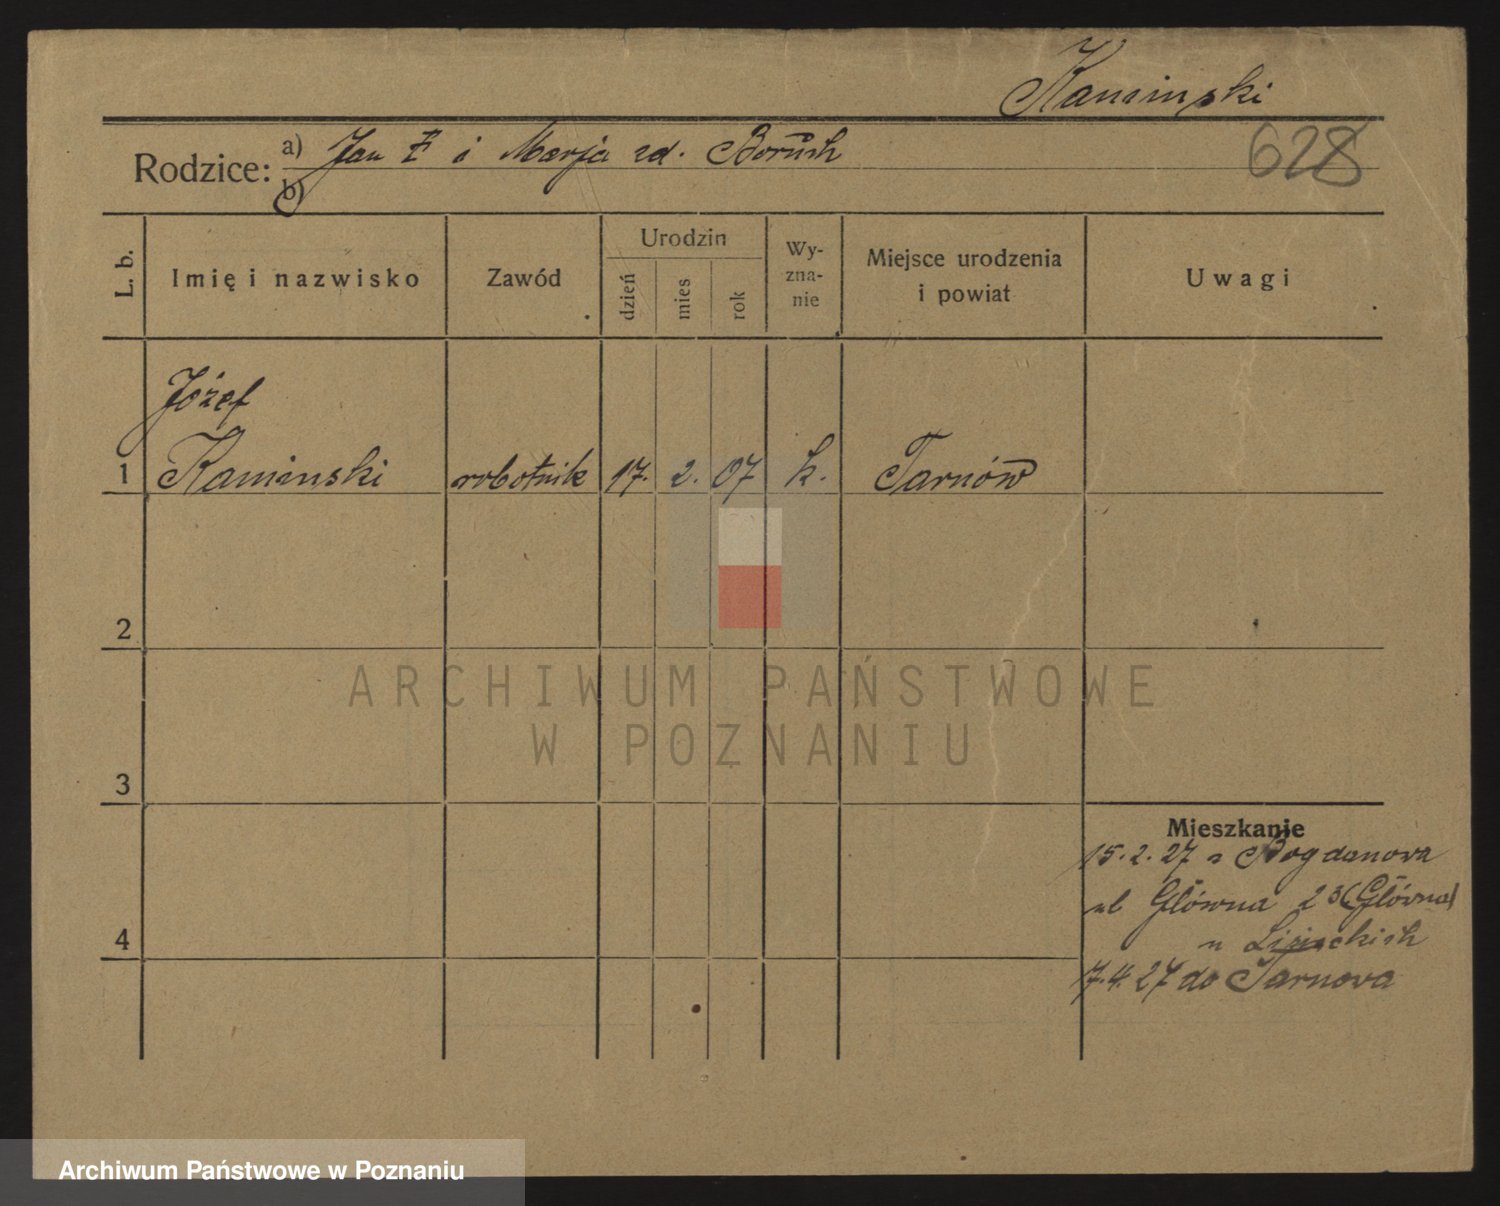 Kaminski
628
Rodzice: a) Jan i Marja zd.
b)
L. b.
Imię i nazwisko
Zawód
Urodzin
dzień
mies
rok
Wy-
zna-
nie
Miejsce urodzenia
i powiat
Uwagi
Józef
1 Kaminski robotnik 17. 2. 07 k. Tarnów
2
ARCHIWUM PAŃSTWOWE
W POZNANIU
3
Mieszkanie
15. 2. 27 z Bogdanowa
ul Główna 23 (Główna)
u
4
7.4.27 do Tarnowa
Archiwum Państwowe w Poznaniu